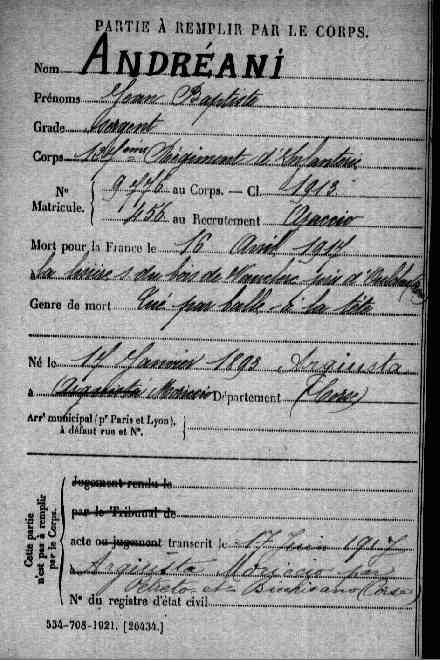 PARTIE À REMPLIR PAR LE CORPS.
Nom ANDRÉANI
Prénoms Jean Baptiste
Grade Sergent
Corps Régiment d'Infanterie
N° Matricule. { 9776 au Corps. — Cl. 1913
456 au Recrutement Ajaccio
Mort pour la France le 16 Avril 1917
à la lisière s du bois de près d'
Genre de mort Tué par balle à la tête
Né le 17 Janvier 1893 Argiusta
à Argiusta Moriccio Département (Corse)
Arrt municipal (pr Paris et Lyon),
à défaut rue et N°.
Cette partie n'est pas à remplir par le Corps.
Jugement rendu le
par le Tribunal de
acte ou jugement transcrit le 17 Juin 1917
à Argiusta Moriccio par
Petreto et Bicchisano (Corse)
N° du registre d'état civil
534-708-1921. [26434.]